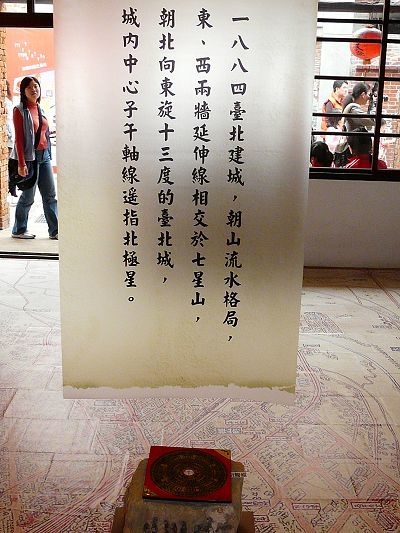 一八八四臺北建城，朝山流水格局，
東、西兩牆延伸線相交於七星山，
朝北向東旋十三度的臺北城，
城內中心子午軸線遥指北極星。